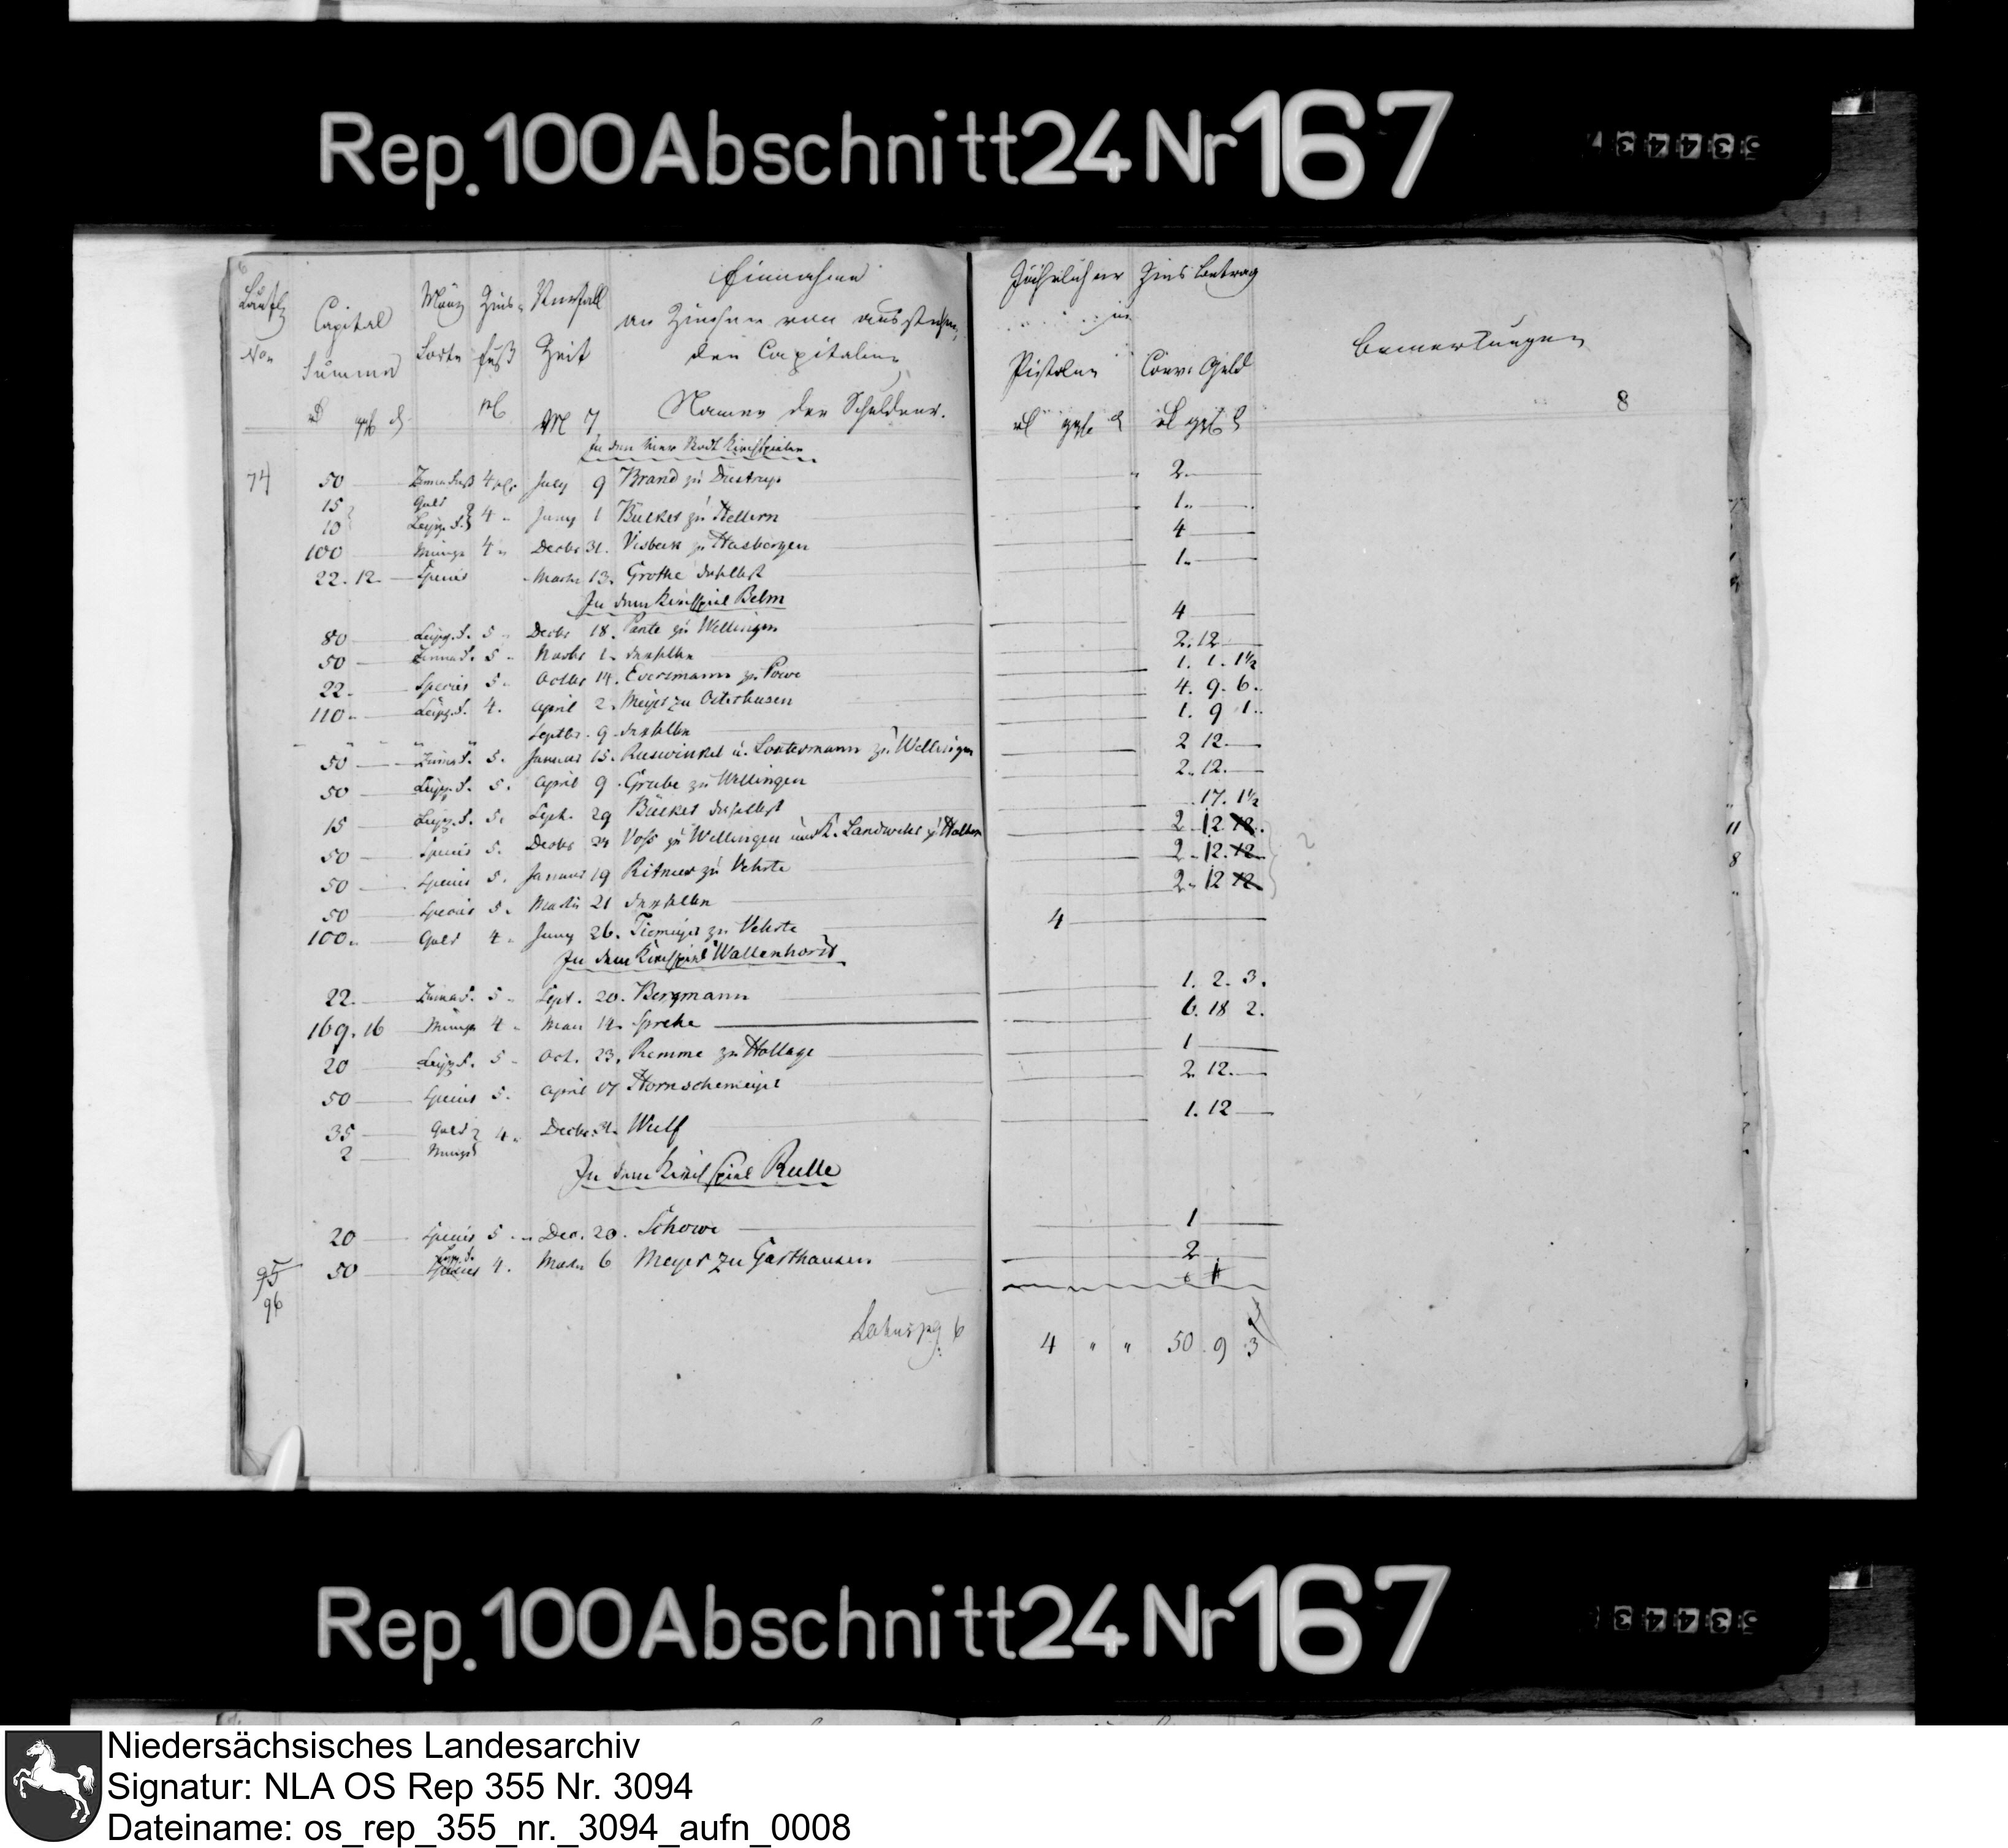 Rep. 100 Abschnitt 24 Nr 167
53443
Laufde Capital Münz Zins- Verfall Einnahme Jährlicher Zins betrag
an Zinsen von ausstehen, in
Non Summa Sorte fuß Zeit den Capitalien Pistolen Conv. Geld Bemerkungen
Namen der Schuldner. 8
M T
In den vier Stadt Kirchspielen
74 50 4 July 9 Brand zu Düstrup 2.
15 Gold
10 Leipz. F. 4 Juny 1 Bücker zu Hellern 1.
100 Münze 4 Decbr 31. Visbeck zu Hasbergen 4
22. 12. Species Martii 13. Grothe daselbst 1.
In dem Kirchspiel Belm
80 Leipz. F. 5 Decbr 18. Pante zu Wellingen 4
50 5 Novbr 1. derselbe 2. 12
22. Species 5. Octbr 14. Eversmann zu Powe 1. 1. 1½
110 Leipz. F. 4. April 2. Meyer zu Osterhusen 4. 9. 6.
" " " Septbr. 9. derselbe 1. 9 1.
50 5. Januar 15. Rieswinkel u. Lostermann zu Wellingen 2 12
50 Leipz. F. 5. April 9. Grube zu Wellingen 2. 12.
15 Leipz. F. 5. Sept. 29 Bücker daselbst 17. 1½
50 Species 5. Decbr 24 Voss zu Wellingen und K. Landwehr zu Haltern 2 12 12.
50 Species 5. Januar 19 Ritmer zu Vehrte 2. 12. 12 ?
50 Species 5. Martii 21 derselbe 2. 12 12
100. Gold 4. Juny 26. Tiemeyer zu Vehrte 4
In dem Kirchspiel Wallenhorst
22. 5 Sept. 20. Bergmann 1. 2. 3.
169. 16 Münze 4 Mart 14. Sprehe 6. 18 2.
20 Leipz. F. 5 Oct. 23. Remme zu Hollage 1
50 Species 5. April 17 Hornschemeyer 2. 12.
35 Gold
2 Münze 4. Decbr. 31. Wulf 1. 12
In dem Kirchspiel Rulle
20 Species 5. Dec. 20. Schowe 1
95 50 Species 4. Martii 6 Meyer zu Gasthausen 2
96
Latus pg. 6 4 " " 50 9 3
Rep. 100 Abschnitt 24 Nr 167
53443
Niedersächsisches Landesarchiv
Signatur: NLA OS Rep 355 Nr. 3094
Dateiname: os_rep_355_nr._3094_aufn_0008